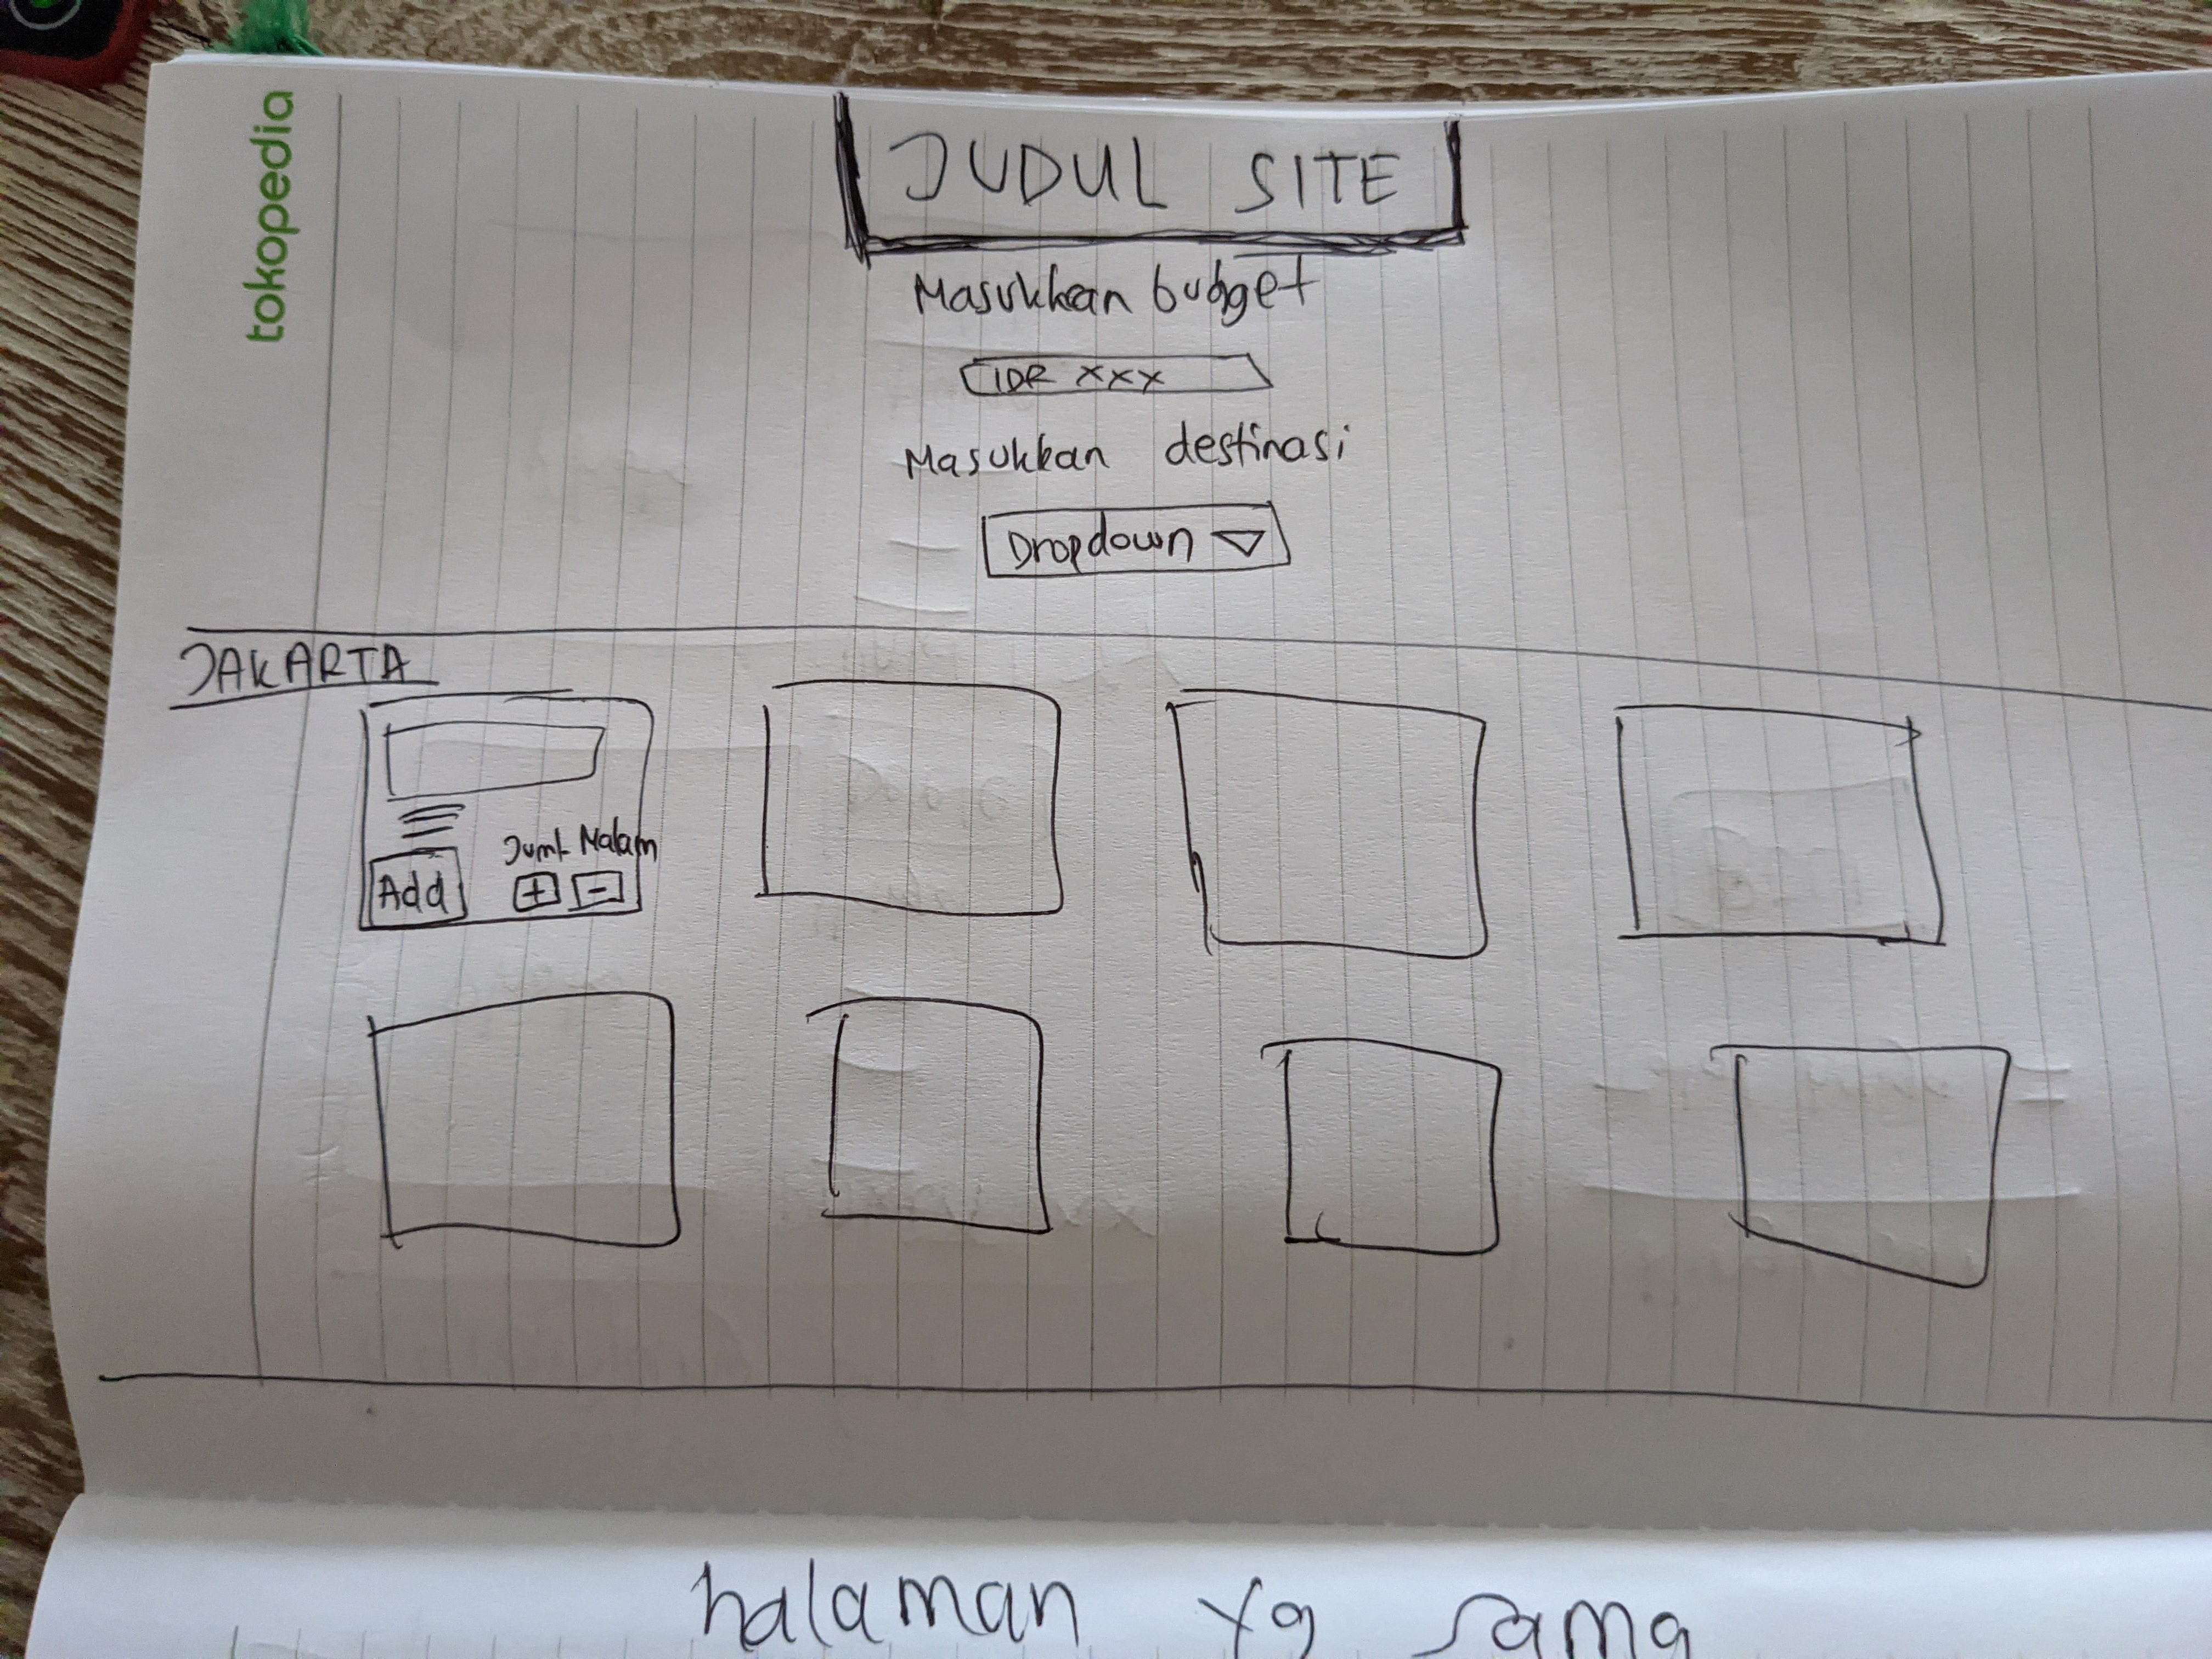 tokopedia
JUDUL SITE
Masukkan budget
IDR xxx
Masukkan destinasi
Dropdown
JAKARTA
Juml Malam
Add + -
halaman yg sama